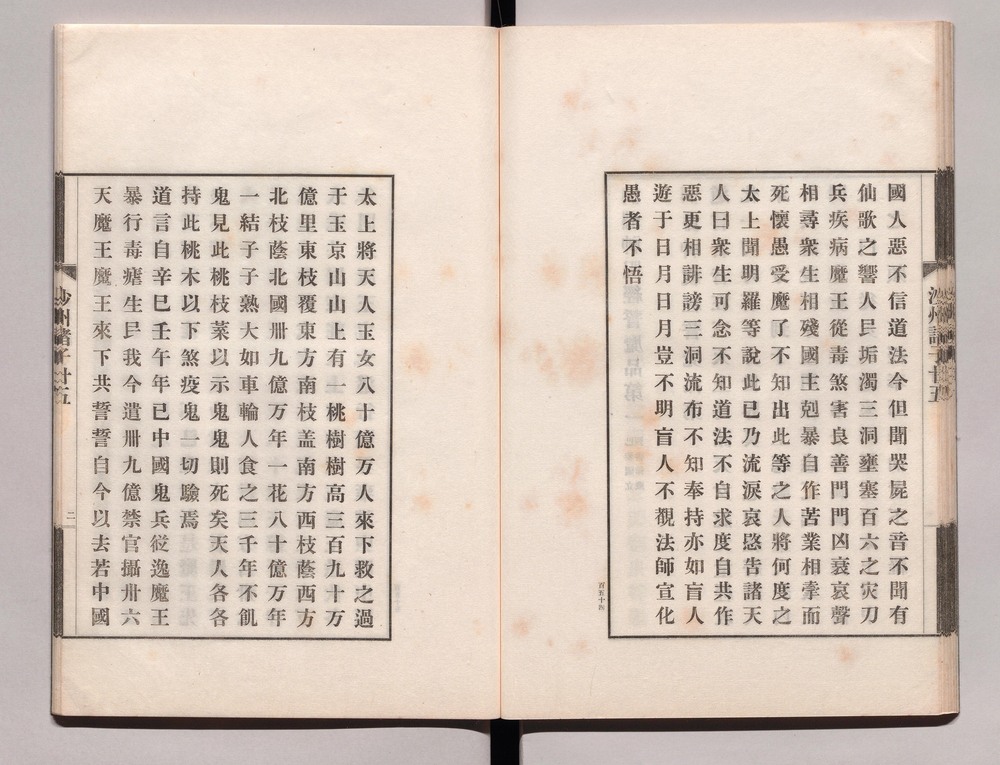 國人惡不信道法今但聞哭屍之音不聞有
仙歌之響人民垢濁三洞壅塞百六之灾刀
兵疾病魔王從毒煞害良善門門凶衰哀聲
相尋衆生相殘國主剋暴自作苦業相牽而
死懷愚受魔了不知出此等之人將何度之
太上聞明羅等說此已乃流淚哀愍告諸天
人曰衆生可念不知道法不自求度自共作
惡更相誹謗三洞流布不知奉持亦如盲人
遊于日月日月豈不明盲人不視法師宣化
愚者不悟
百五十四
太上將天人玉女八十億万人來下救之過
于玉京山山上有一桃樹樹高三百九十万
億里東枝覆東方南枝盖南方西枝蔭西方
北枝蔭北國卌九億万年一花八十億万年
一結子子熟大如車輪人食之三千年不飢
鬼見此桃枝菜以示鬼鬼則死矣天人各各
持此桃木以下煞疫鬼一切驗焉
道言自辛巳壬午年已中國鬼兵從逸魔王
暴行毒瘧生民我今遣卌九億禁官攝卅六
天魔王魔王來下共誓誓自今以去若中國
二